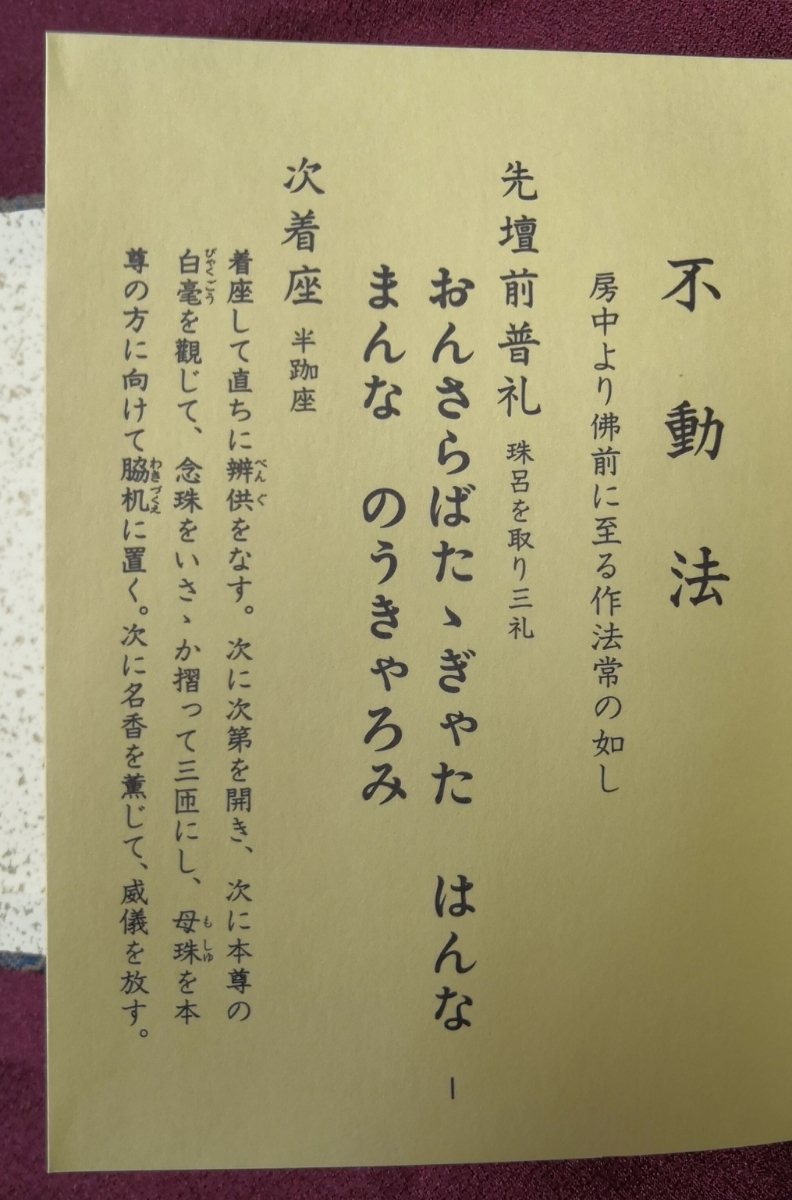 不動法
房中より佛前に至る作法常の如し
先壇前普礼 珠呂を取り三礼
おんさらばたゝぎゃた はんな
まんな のうきゃろみ
次着座 半跏座
着座して直ちに辨供をなす。次に次第を開き、次に本尊の
白毫を觀じて、念珠をいさゝか摺って三匝にし、母珠を本
尊の方に向けて脇机に置く。次に名香を薫じて、威儀を放す。
1